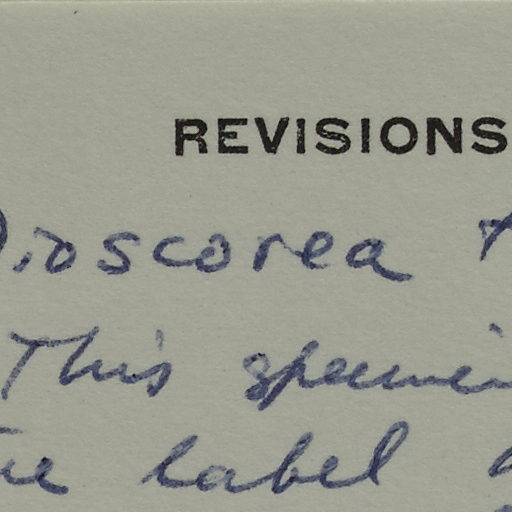 REVISIONS
Dioscorea
This specimen
label